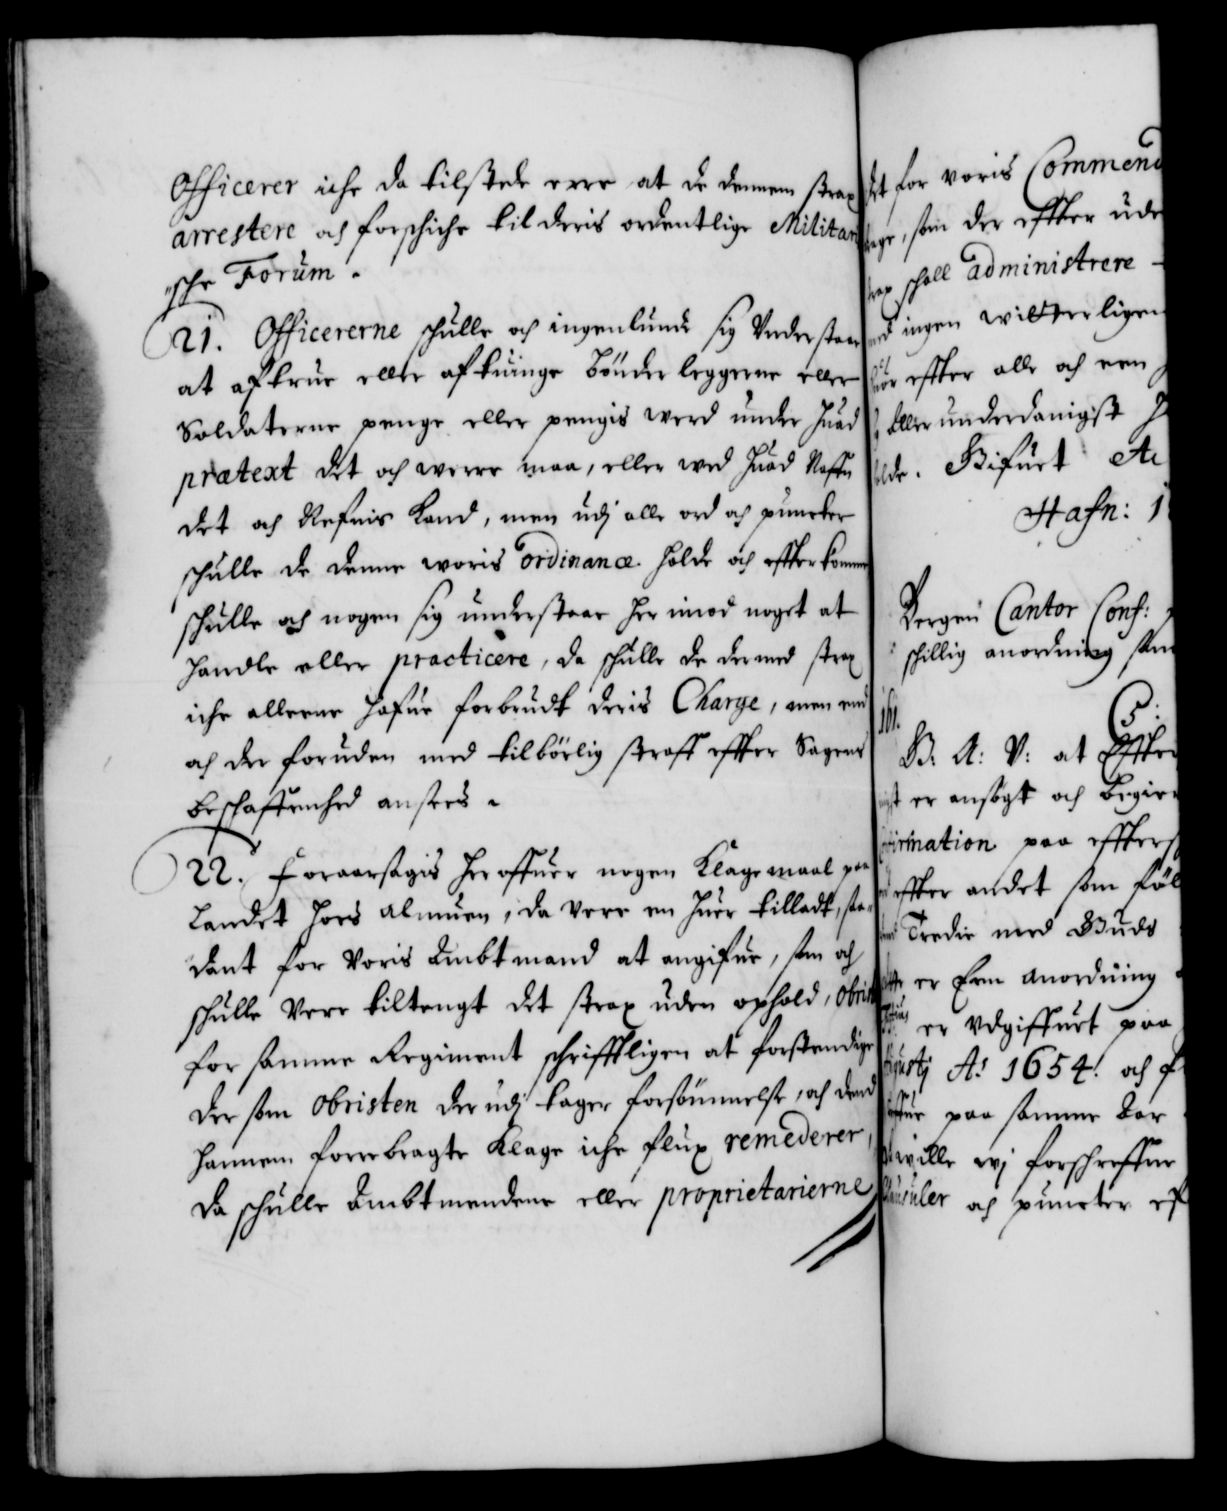 Officerer iche da tilstede erre at de dennem strax
arrestere och forschiche til deris ordentlige Militari
sche Forum.
21. Officererne schulle och ingenlunde sig Understaar
at aftrue eller aftuinge bönder leggerne eller
Soldaterne penge eller pengis werd under huad
prætext det och werre maa, eller wed huad Naffn
det och Nefnis kand, men udj alle ord och puncter
schulle de denne woris ordinance holde och effterkomme
schulle och nogen sig understaar her imod noget at
handle eller practicere, da schulle de dermed strax
iche alleene hafue forbrudt deris Charge, men end
och der foruden med tilbörlig straff effter Sagens
beschaffenhed ansees.
22. Foraarsagis her offuer nogen Klagemaal paa
Landet hoes almuen, da Verre en huer tilladt, saa-
dant for Voris Ambtmand at angifue, som och
schulle Verre tiltengt det strax uden ophold, Obrist
for samme Regiment schrifftligen at forstendige
der som Obristen der udj tager forsömmelse, och dend
hannem forrebragte Klage iche flux remederer,
da schulle Ambtmendene eller proprietarierne
det for voris Commend
som der effter ude
schall administrere
ingen wilterligen
effter alle och een
Aller underdanigst
Bifuet
Hafn: 1
Bergen Cantor Conf:
schillig anordning
161.
C 5:
G. A: V: at Effter
er ansögt och begier
firmation paa efftersch
effter andet som föl
Tredie med Guds
er Een anordning
er Vdgiffuet paa
Augustj A: 1654. och
paa samme
wille wj forschreffne
Clausuler och puncter